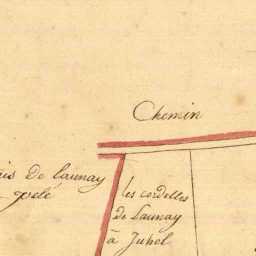 Chemin
de Launay
les cordelles
de Launay
à Juhel